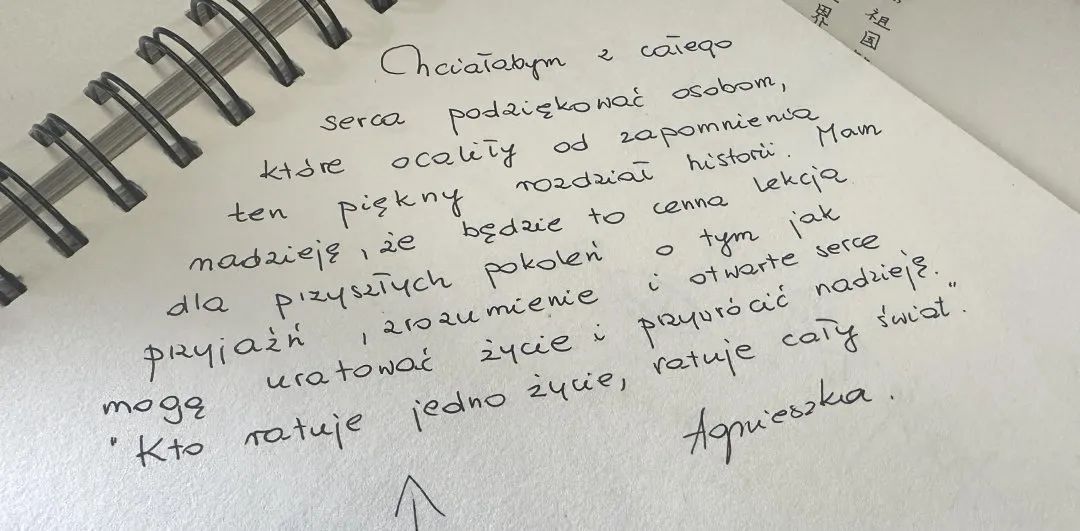 Chciałabym z całego
serca podziękować osobom,
które ocaliły od zapomnienia
ten piękny rozdział historii. Mam
nadzieję, że będzie to cenna lekcja
dla przyszłych pokoleń o tym jak
przyjaźń, zrozumienie i otwarte serce
mogą uratować życie i przywrócić nadzieję.
"Kto ratuje jedno życie, ratuje cały świat".
Agnieszka.
祖国
界